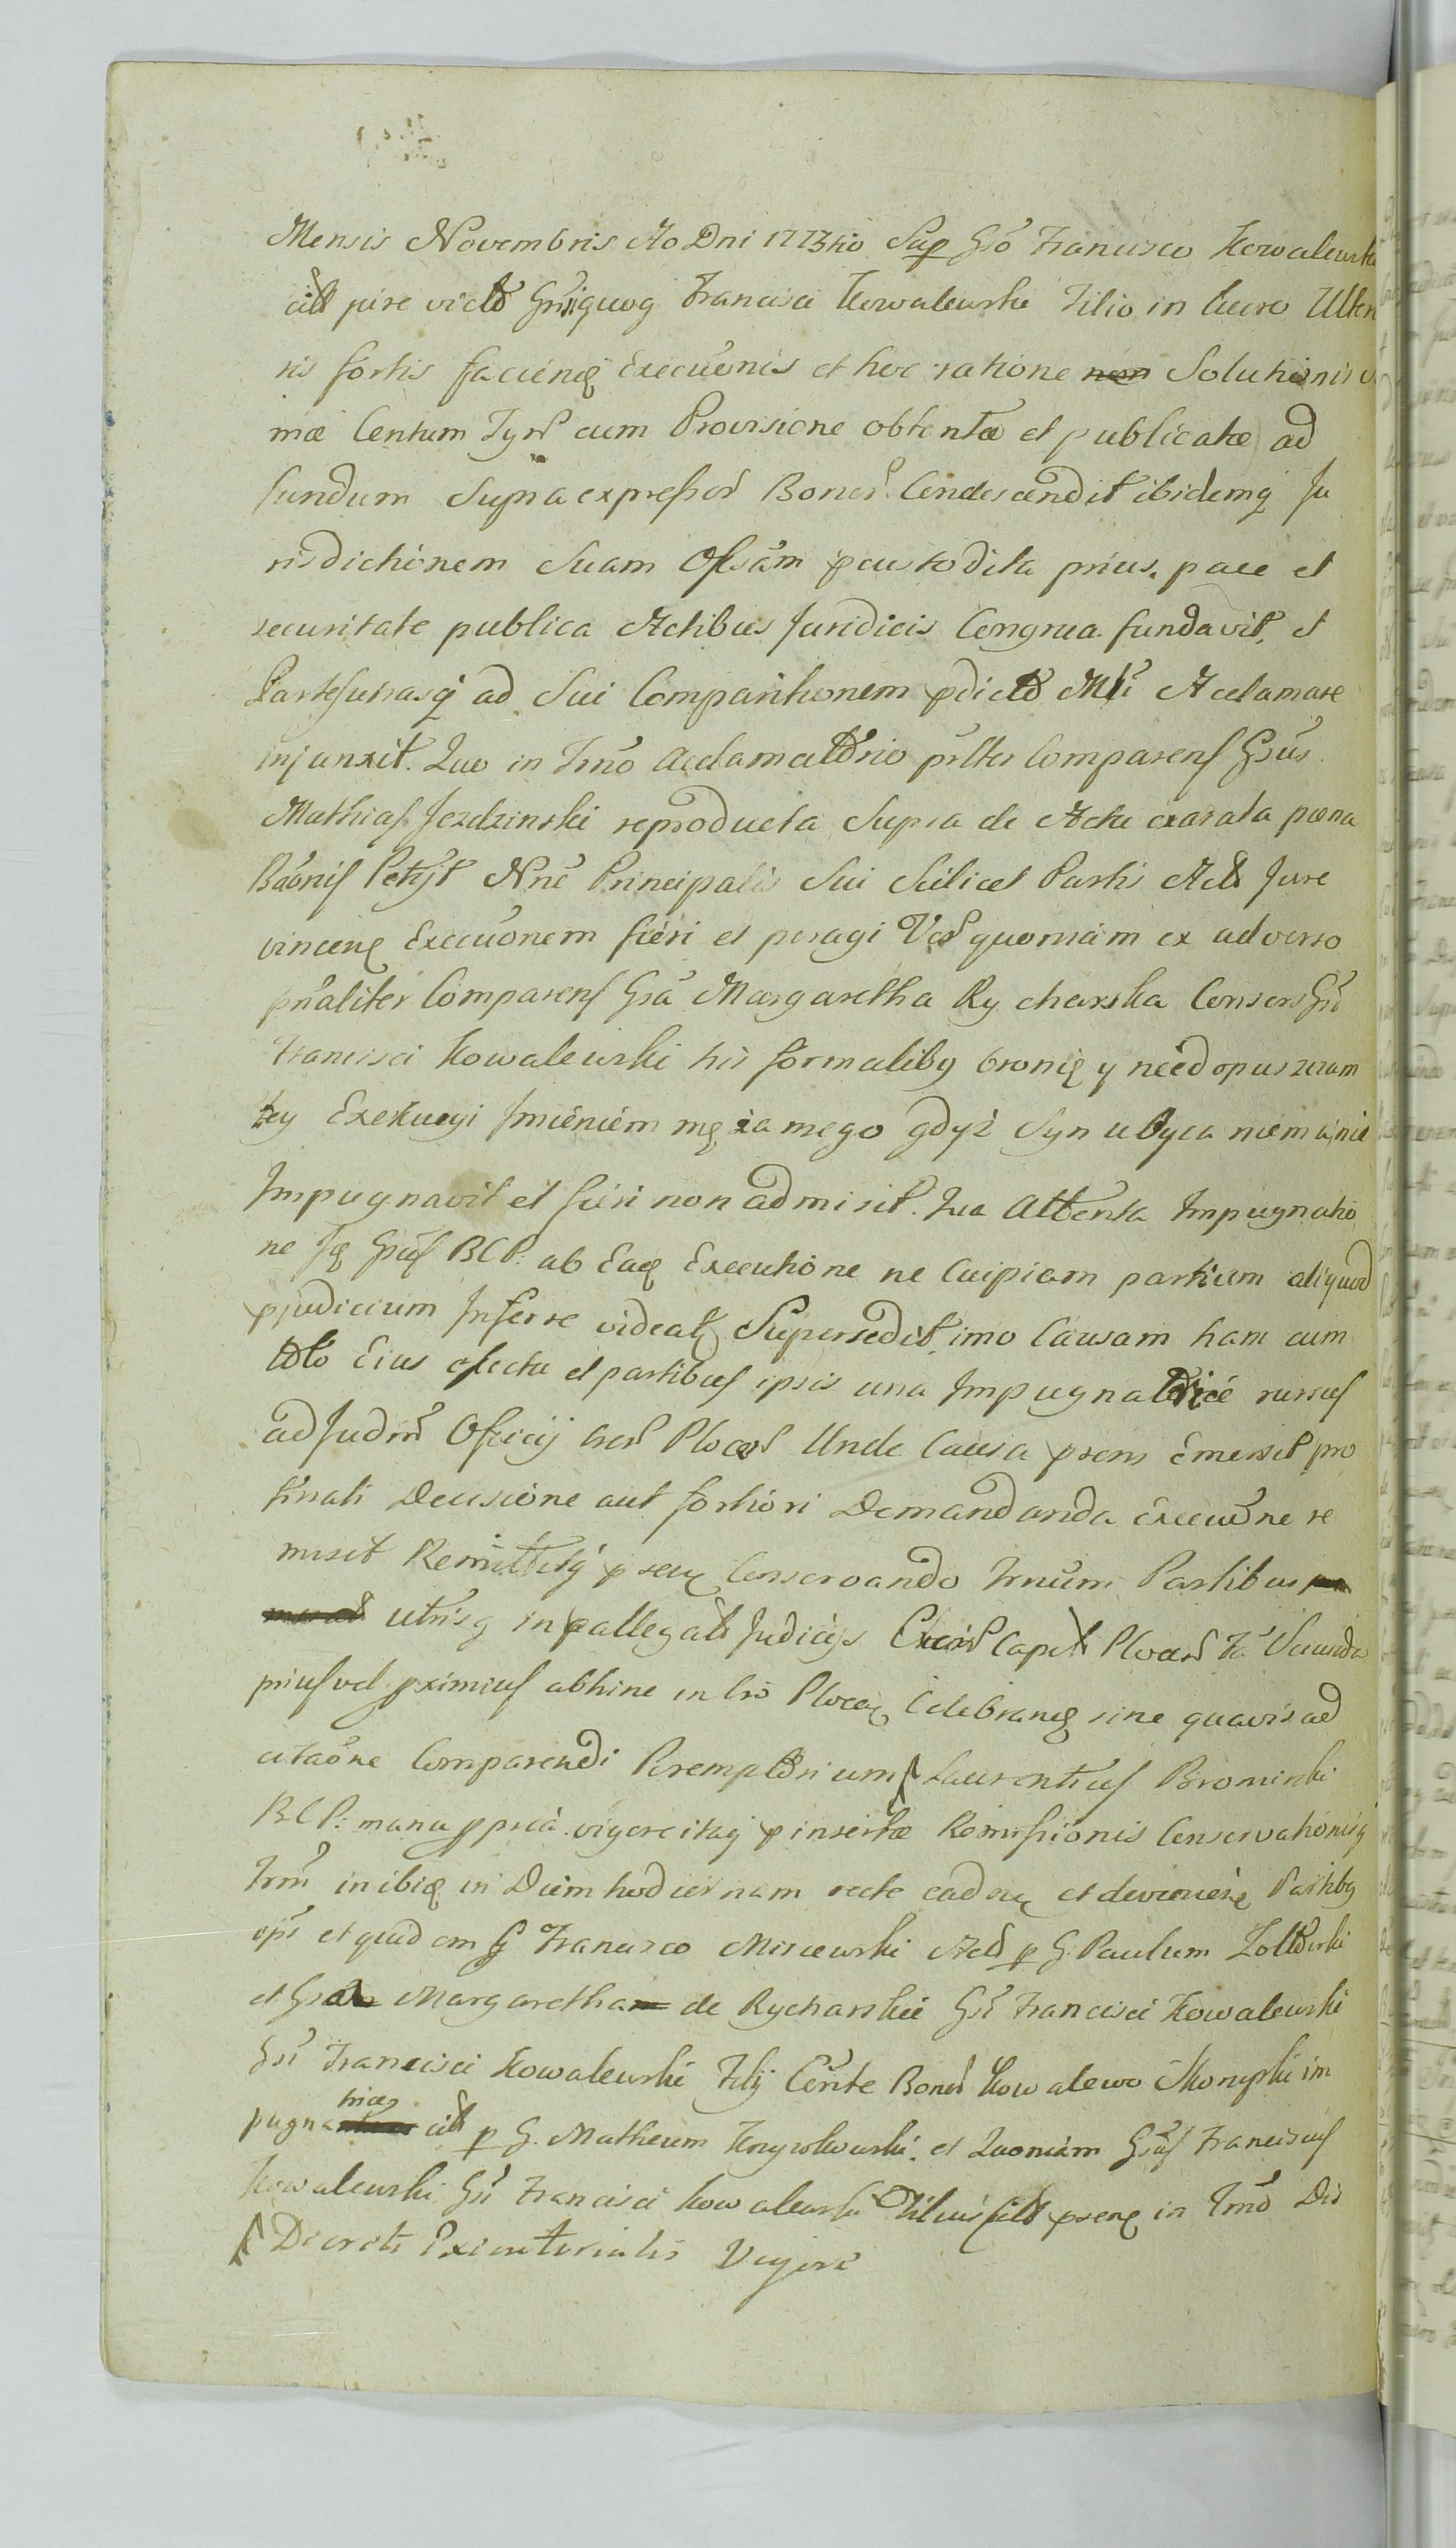 Mensis Novembris Ao Dni 1773tio Sup Gso Francisco Kowalewski
citt jure victo Gsi quoq Francisci Kowalewski Filio in lucro Ulterio
ris fortis faciendę Execuōnis et hoc ratione non Solutionis
mæ Centum Tynf cum Provisione obtentæ et publicatæ ad
fundum Supra expressor Bonor Condescendit ibidemq Ju
risdictionem Suam Offsam pcustodita prius pace et
securitate publica Actibus Juridicis Congrua fundavit, et
Partesutrasq ad Sui Comparitionem pdicto Mli Acclamare
injunxit. Quo in Trno acclamatorio prlter Comparens Gsus
Mathias Jezdzinski reproducta Supra de Actu exarata pœna
Baōnis Petyt Nne Principalis Sui Scilicet Partis Act Jure
vincenę Execuōnem fieri et peragi Vers quoniam ex adverso
prnaliter Comparens Gsa Margaretha Rycharska Consors Gsi
Francisci Kowalewski his formaliby bronię y nie dopuszczam
tey Exekucyi Jmieniem męża mego gdyż Syn ubyca niema, nie
Impugnavit et fieri non admisit. Qua Attenta Impugnatio
ne Ję Gsus BCP: ab Eadę Executione ne Cuipiam partium aliquod
pjudicium Inferre videatę Supersedit, imo Causam hanc cum
toto Eius efectu et partibus ipsis una Impugnatrice rursus
ad Judm Oficij Crel Plocen Unde Causa prens Emersit pro
finali Decisione aut fortiori Demandanda execuōne re
misit Remittitq prenę Conservando Trnum Partibus
utrisq in pallegatis Judicijs Capit Plocen
prius vel pximius abhinc in Cro Plocen Celebrandę sine quavis ad
citaōne Comparendi Peremptorium Laurentius Bromirski
BCP: manu ppria vigore itaq pinsertæ Remissionis Conservationisq
Trni inibię in Diem hodiernam recte cadenę et devenienę Partiby
ips et quidem G Francisco Misiewski Act p G. Paulum Zoltowski
et Gsa Margaretha de Rycharskie Gsi Francisci Kowalewski
Gsi Francisci Kowalewski Filij Cōnte Bonor Kowalewo Skorupki im
pugnatrices citt p G. Matheum et Quoniam Gsus Franciscus
Kowalewski Gsi Francisci Kowalewski Filius citt prenę in Trno Dis
Decreti Executorialis Vigore